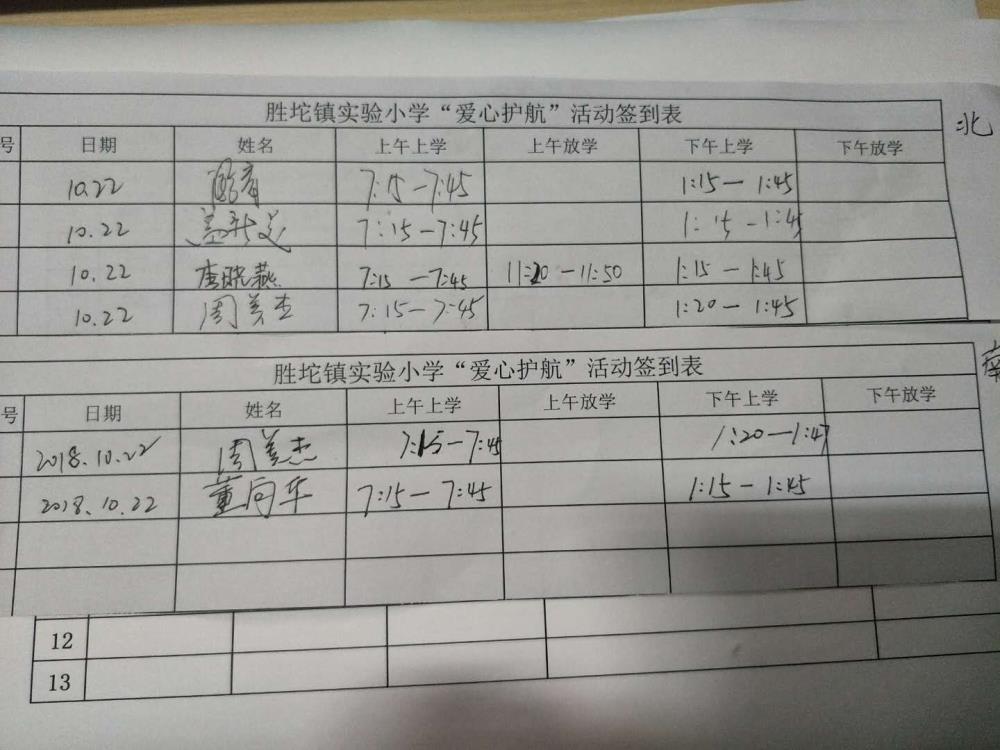 胜坨镇实验小学“爱心护航”活动签到表
北
号 日期 姓名 上午上学 上午放学 下午上学 下午放学
10.22 7:15-7:45 1:15-1:45
10.22 7:15-7:45 1:15-1:45
10.22 李晓燕 7:15-7:45 11:20-11:50 1:15-1:45
10.22 周美杰 7:15-7:45 1:20-1:45
胜坨镇实验小学“爱心护航”活动签到表
南
号 日期 姓名 上午上学 上午放学 下午上学 下午放学
2018.10.22 周美杰 7:15-7:45 1:20-1:47
2018.10.22 董向车 7:15-7:45 1:15-1:45
12
13